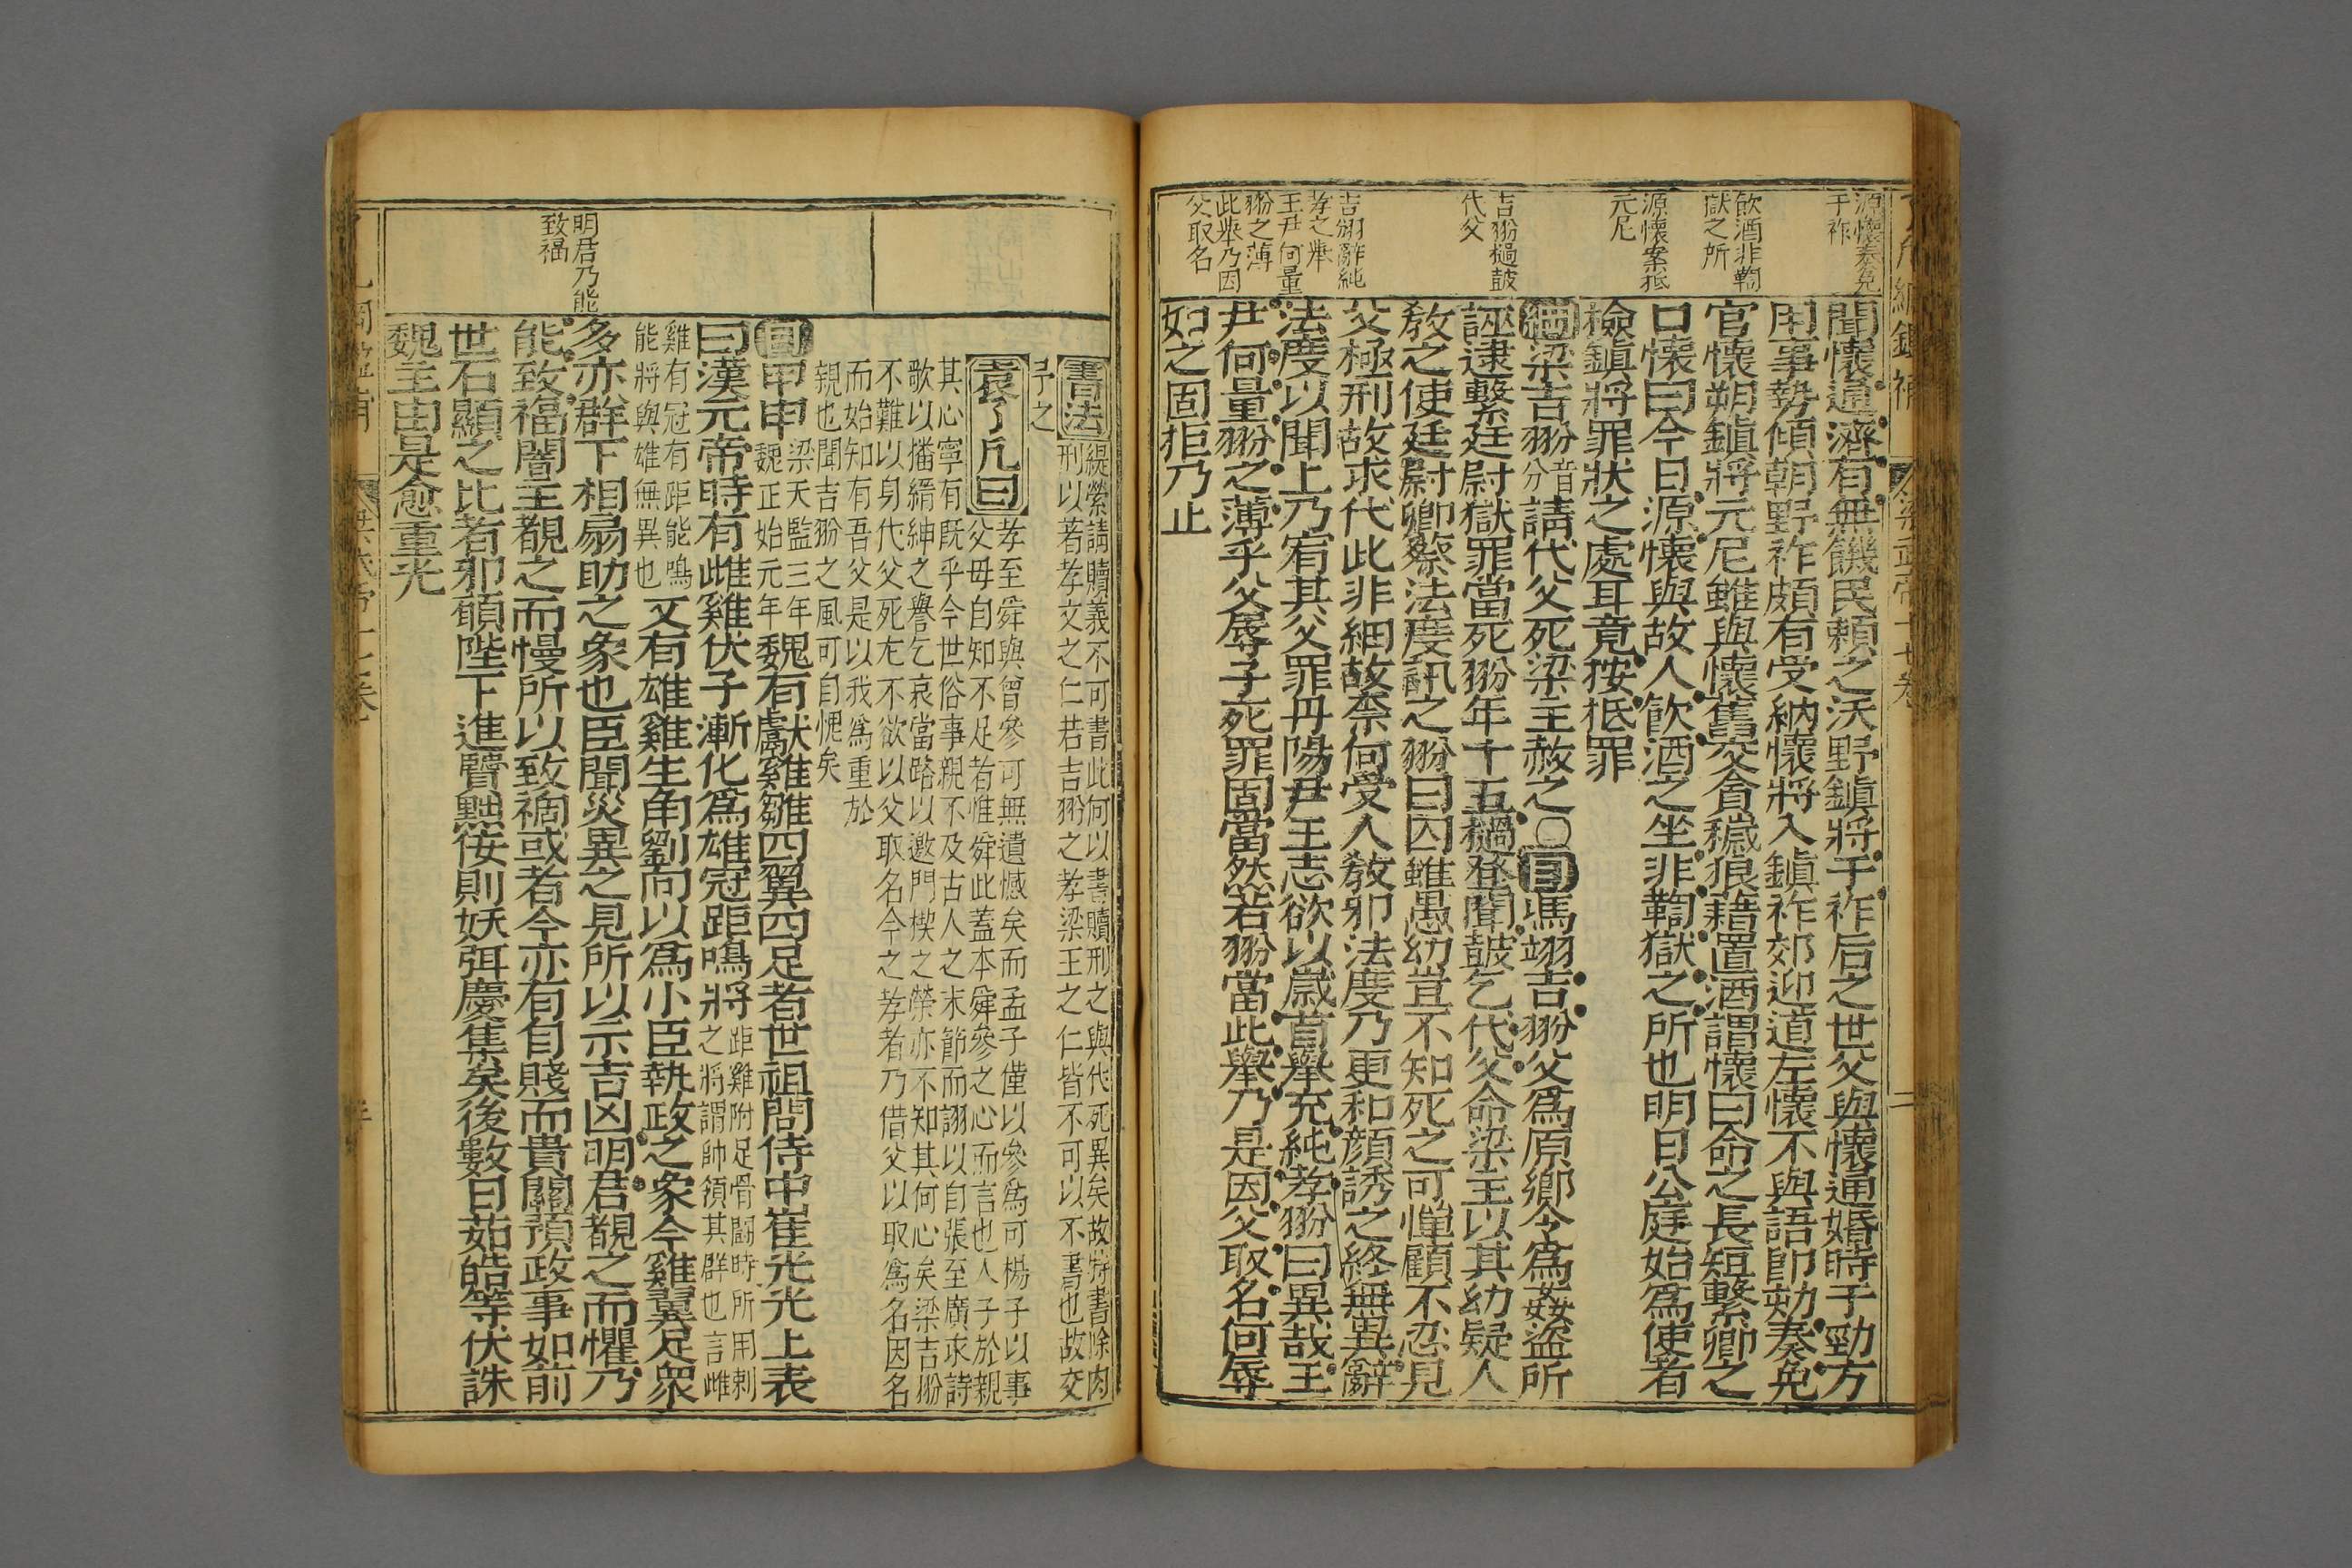 源懷奏免
于祚
飲酒非鞫
獄之所
源懷案抵
元尼
吉翂檛鼓
代父
吉翂辭純
孝之舉
王尹何量
翂之薄
此舉乃因
父取名
聞懷通濟有無饑民賴之沃野鎮將于祚后之世父與懷通婚時于勁方
用事勢傾朝野祚頗有受納懷將入鎮祚郊迎道左懷不與語即劾奏免
官懷朔鎮將元尼雖與懷舊交貪穢狼藉置酒謂懷曰命之長短繫卿之
口懷曰今日源懷與故人飲酒之坐非鞫獄之所也明日公庭始爲使者
檢鎮將罪狀之處耳竟按抵罪
綱梁吉翂音分請代父死梁主赦之〇目馮翊吉翂父爲原鄉令爲姦盜所
誣逮繫廷尉獄罪當死翂年十五檛登聞鼓乞代父命梁主以其幼疑人
教之使廷尉卿蔡法度訊之翂曰囚雖愚幼豈不知死之可憚顧不忍見
父極刑故求代此非細故柰何受人教邪法度乃更和顏誘之終無異辭
法度以聞上乃宥其父罪丹陽尹王志欲以歲首舉充純孝翂曰異哉王
尹何量翂之薄乎父辱子死罪固當然若翂當此舉乃是因父取名何辱
如之固拒乃止
明君乃能
致福
書法緹縈請贖義不可書此何以書贖刑之與代死異矣故特書除肉
刑以著孝文之仁若吉翂之孝梁王之仁皆不可以不書也故交
予之
袁了凡曰孝至舜與曾參可無遺憾矣而孟子僅以參爲可楊子以事
父毋自知不足者惟舜此蓋本舜參之心而言也人子於親
其心寧有既乎今世俗事親不及古人之末節而詡以自張至廣求詩
歌以播縉紳之譽乞哀當路以邀門楔之榮亦不知其何心矣梁吉翂
不難以身代父死尤不欲以父取名今之孝者乃借父以取爲名因名
而始知有吾父是以我爲重於
親也聞吉翂之風可自愧矣
目甲申梁天監三年魏正始元年魏有獻雞雛四翼四足者世祖問侍中崔光光上表
曰漢元帝時有雌雞伏子漸化爲雄冠距鳴將距雞附足骨鬬時所用刺之將謂帥領其群也言雌
雞有冠有距能鳴能將與雄無異也又有雄雞生角劉向以爲小臣執政之象今雞翼足衆
多亦群下相扇助之象也臣聞災異之見所以示吉凶明君覩之而懼乃
能致福闇主覩之而慢所以致禍或者今亦有自賤而貴關預政事如前
世石顯之比者邪願陛下進賢黜佞則妖弭慶集矣後數日茹皓等伏誅
魏主由是愈重光